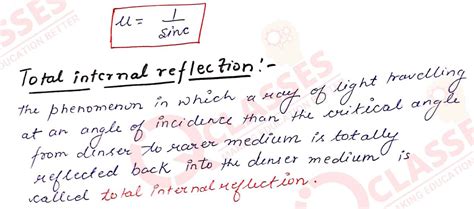 μ = 1/sinc
Total internal reflection:-
The phenomenon in which a ray of light travelling
at an angle of incidence than the critical angle
from denser to rarer medium is totally
reflected back into the denser medium is
called total internal reflection.
CLASSES
EDUCATION BETTER
CLASSES
CLASSES
MAKING EDUCATION